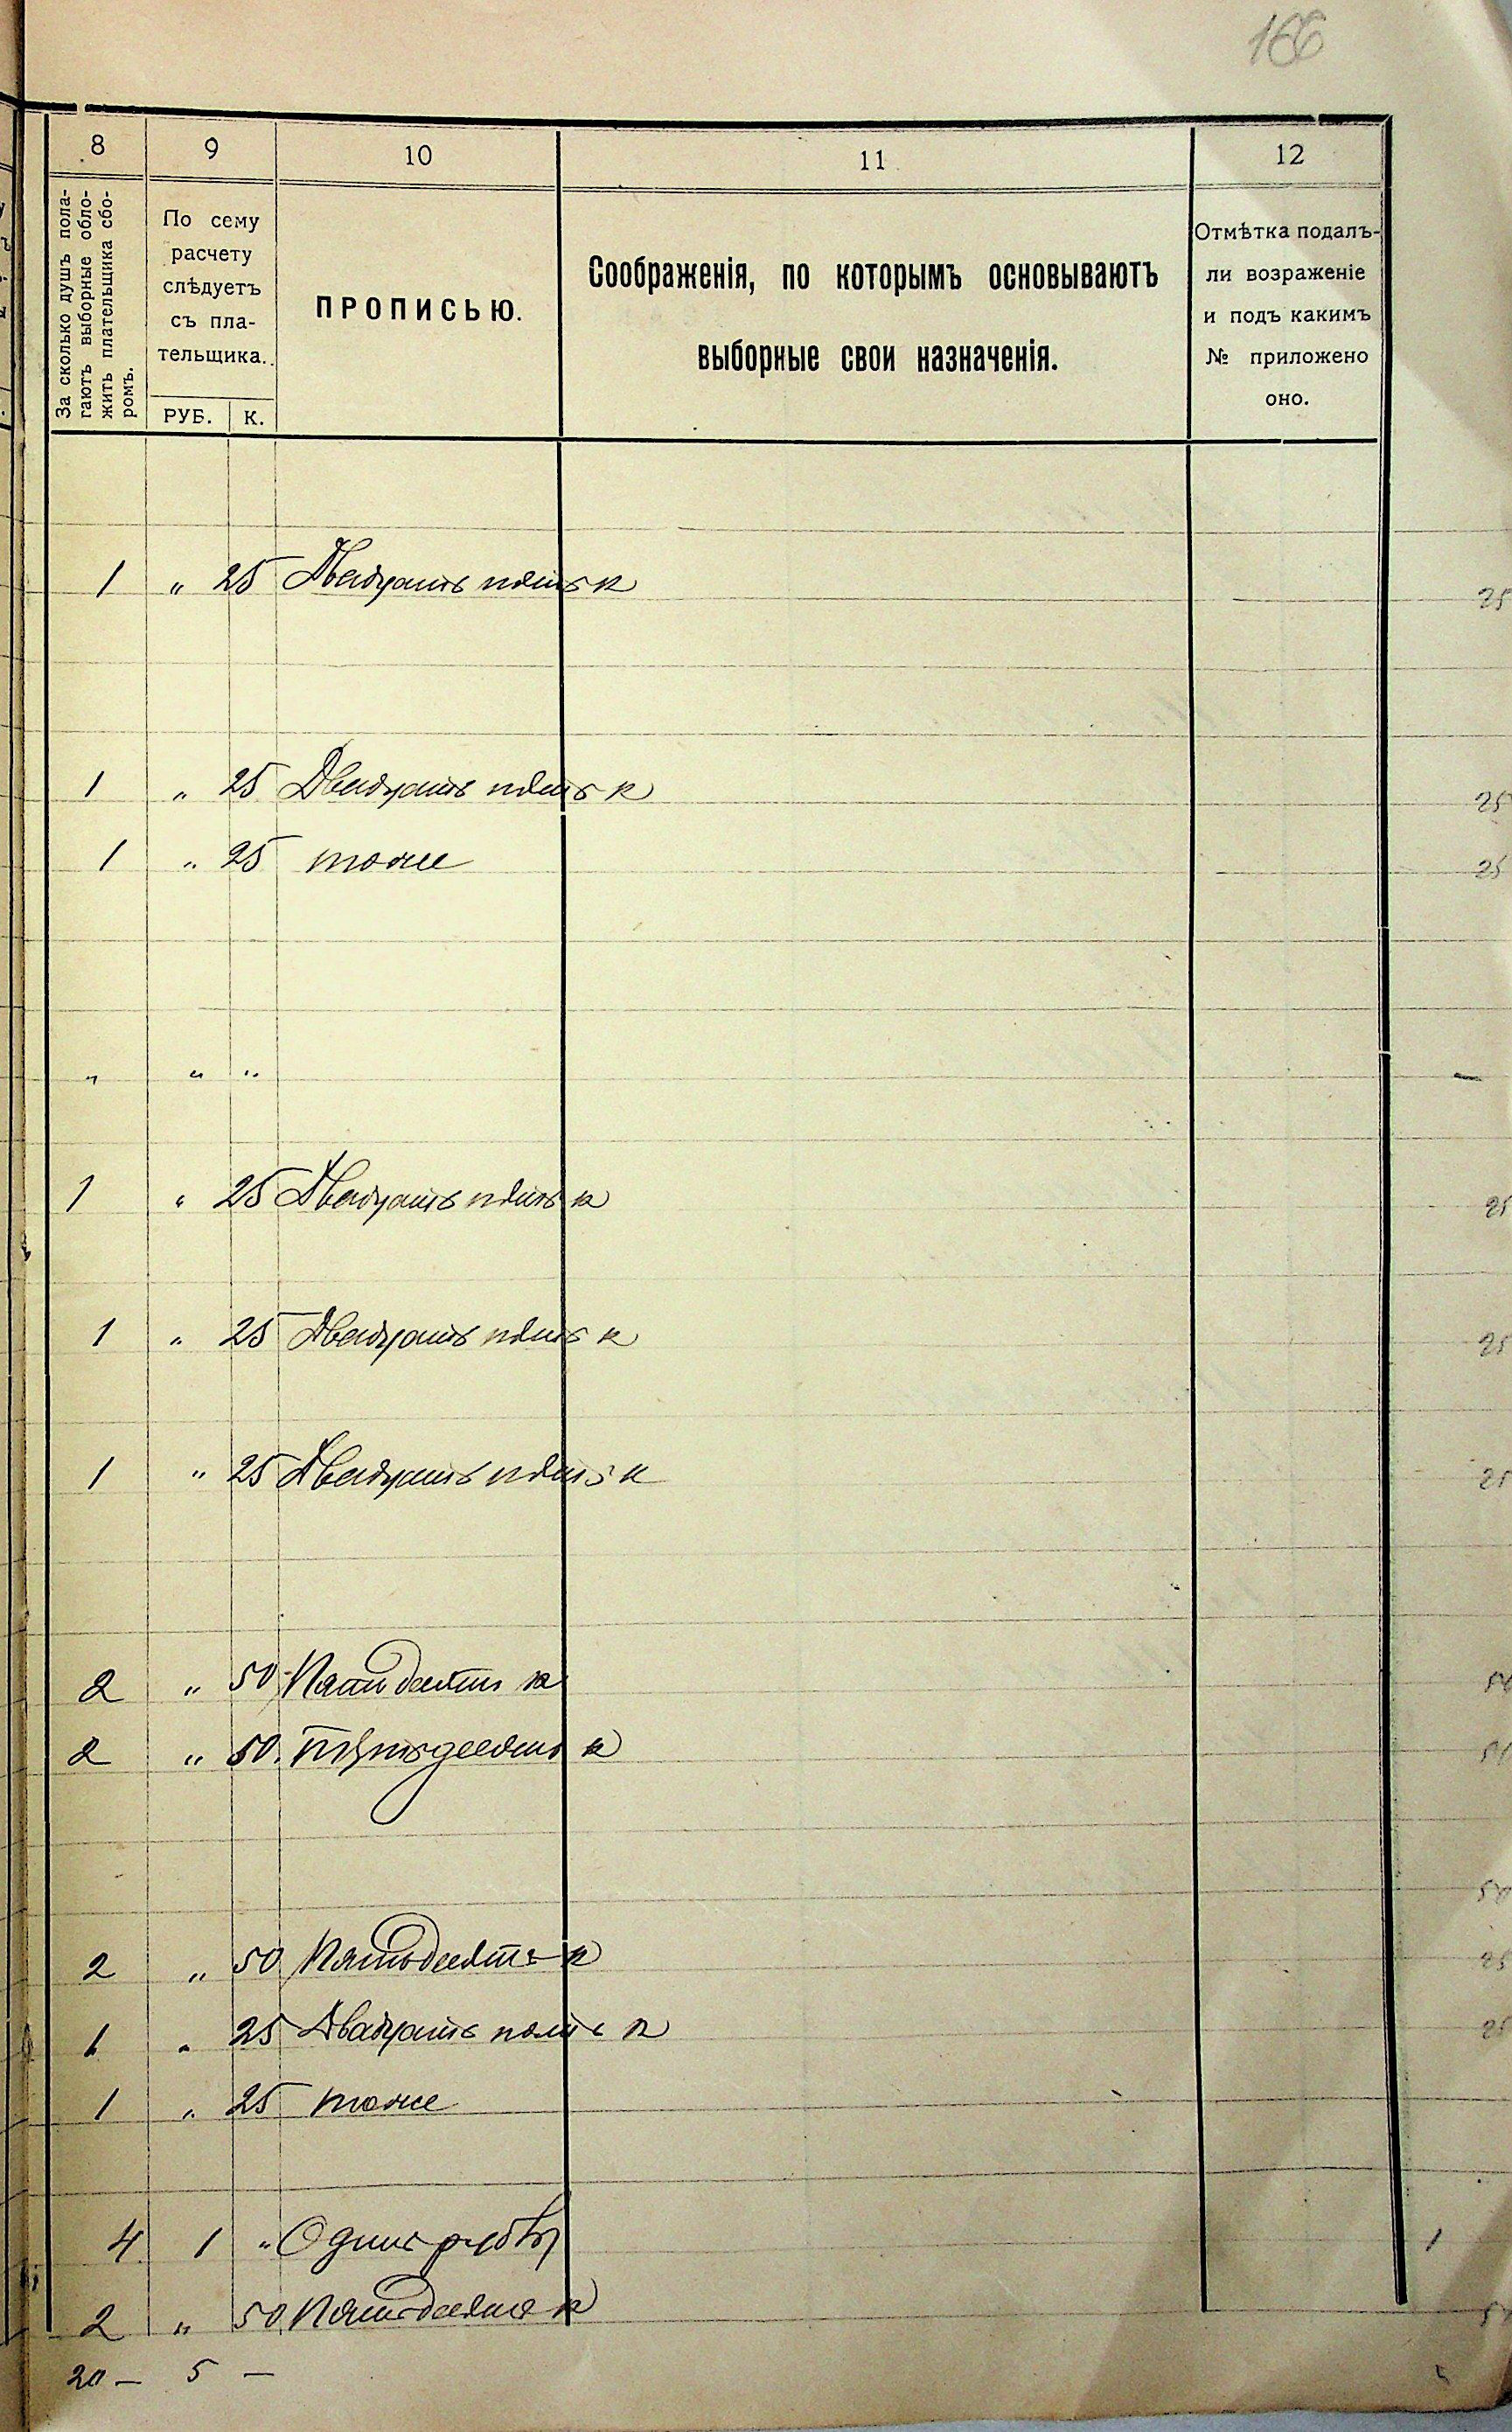 166
8 9 10 11 12
За сколько душъ пола-
гаютъ выборные обло-
жить плательщика сбо-
ромъ.
По сему
расчету
слѣдуетъ
съ пла-
тельщика.
РУБ. К.
ПРОПИСЬЮ.
Соображенія, по которымъ основываютъ
выборные свои назначенія.
Отмѣтка подалъ-
ли возраженіе
и подъ какимъ
№ приложено
оно.
1 " 25 Двадцать пять к 25
1 " 25 Двадцать пять к 25
1 " 25 тоже 25
" " " —
1 " 25 Двадцать пять к 25
1 " 25 Двадцать пять к 25
1 " 25 Двадцать пять к 25
2 " 50 Пятьдесятъ к
2 " 50. Пятьдесятъ к
50
2 " 50 Пятьдесятъ к 25
1 " 25 Двадцать пять к 25
1 " 25 тоже
4 1 " Одинъ рубль 1
2 " 50 Пятьдесятъ к
20 — 5 —